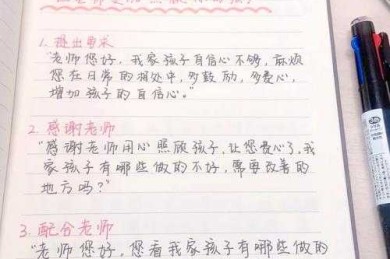 1. 提出要求
"老师您好，我家孩子自信心不够，麻烦
您在日常的相处中，多鼓励，多爱心，
增加孩子的自信心。"
2. 感谢老师
"感谢老师用心照顾孩子，让您费心了，我
家孩子有哪些做的不好，需要改善的
地方吗？"
3. 配合老师
"老师您好，您看我家孩子有哪些做的